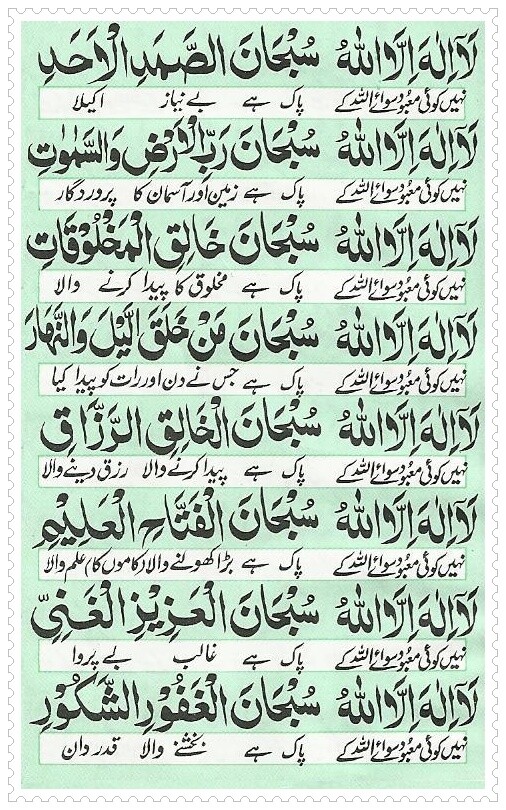 لَآ اِلٰهَ اِلَّا اللّٰهُ سُبْحَانَ الصَّمَدِ الْاَحَدِ
نہیں کوئی معبود سوائے اللہ کے پاک ہے بے نیاز اکیلا
لَآ اِلٰهَ اِلَّا اللّٰهُ سُبْحَانَ رَبِّ الْاَرْضِ وَالسَّمٰوٰتِ
نہیں کوئی معبود سوائے اللہ کے پاک ہے زمین اور آسمان کا پروردگار
لَآ اِلٰهَ اِلَّا اللّٰهُ سُبْحَانَ خَالِقِ الْمَخْلُوْقَاتِ
نہیں کوئی معبود سوائے اللہ کے پاک ہے مخلوق کا پیدا کرنے والا
لَآ اِلٰهَ اِلَّا اللّٰهُ سُبْحَانَ مَنْ خَلَقَ الَّيْلَ وَالنَّهَارَ
نہیں کوئی معبود سوائے اللہ کے پاک ہے جس نے دن اور رات کو پیدا کیا
لَآ اِلٰهَ اِلَّا اللّٰهُ سُبْحَانَ الْخَالِقِ الرَّزَّاقِ
نہیں کوئی معبود سوائے اللہ کے پاک ہے پیدا کرنے والا رزق دینے والا
لَآ اِلٰهَ اِلَّا اللّٰهُ سُبْحَانَ الْفَتَّاحِ الْعَلِيْمِ
نہیں کوئی معبود سوائے اللہ کے پاک ہے بڑا کھولنے والا (کاموں کا) علم والا
لَآ اِلٰهَ اِلَّا اللّٰهُ سُبْحَانَ الْعَزِيْزِ الْغَنِيِّ
نہیں کوئی معبود سوائے اللہ کے پاک ہے غالب بے پروا
لَآ اِلٰهَ اِلَّا اللّٰهُ سُبْحَانَ الْغَفُوْرِ الشَّكُوْرِ
نہیں کوئی معبود سوائے اللہ کے پاک ہے بخشنے والا قدر دان